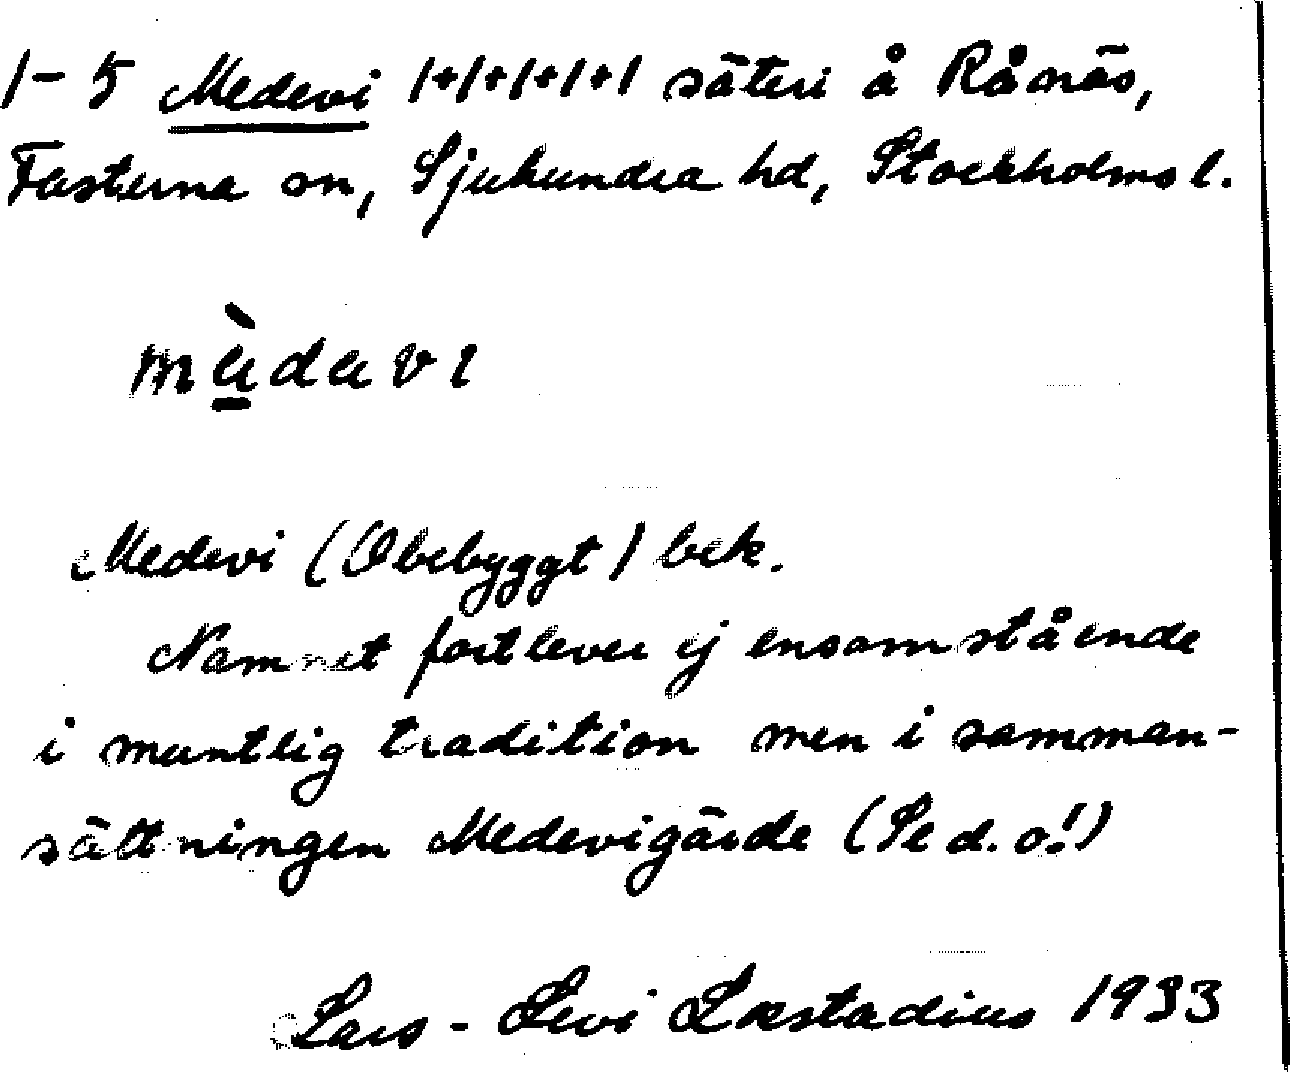 1-5 Medevi 1+1+1+1+1 säteri å Rånäs,
Fasterna sn, Sjuhundra hd, Stockholms l.
mèdevi
Medevi (Obebyggt) bek.
Namnet fortlever ej ensamstående
i muntlig tradition men i samman-
sättningen Medevigärde (Se d. o!)
Lars-Levi Læstadius 1933